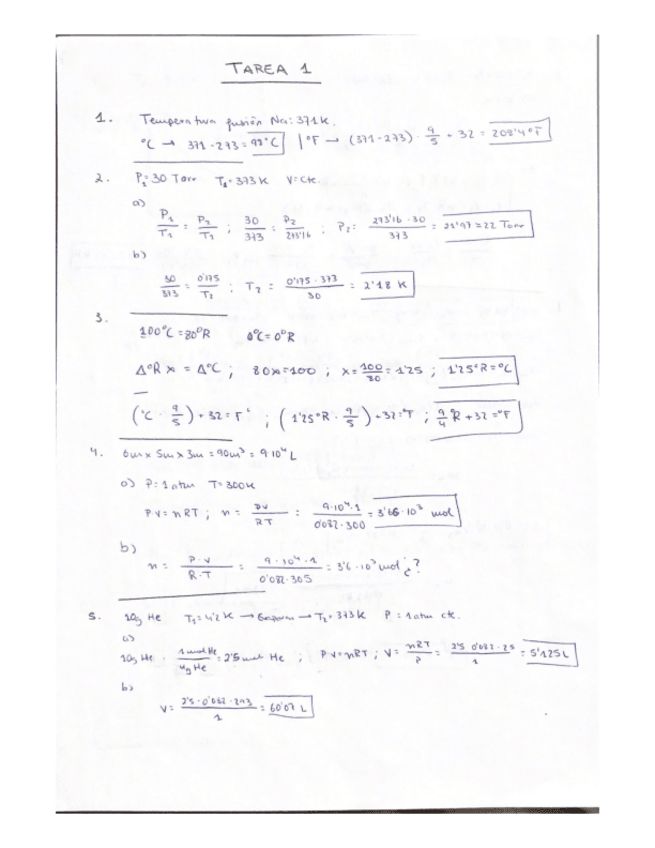 TAREA 1
1. Temperatura fusión Na: 371K.
°C → 371 - 273 = 98°C | °F → (371-273) · 9/5 + 32 = 208'4°F
2. P₁=30 Torr T₁=373K V=cte.
a)
P₁/T₁ = P₂/T₂ ; 30/373 = P₂/273'16 ; P₂= 273'16 · 30/373 = 21'97 = 22 Torr
b)
30/373 = 0'175/T₂ ; T₂ = 0'175 · 373/30 = 2'18 K
3.
100°C = 80°R 0°C = 0°R
Δ°R x = Δ°C ; 80x=100 ; x = 100/80 = 1'25 ; 1'25°R = °C
(°C · 9/5) + 32 = F° ; (1'25°R · 9/5) + 32 = °F ; 9/4 °R + 32 = °F
4. 6m x 5m x 3m = 90m³ = 9·10⁴ L
a) P=1 atm T=300K
PV = nRT ; n = PV/RT = 9·10⁴·1/0'082·300 = 3'66·10³ mol
b)
n = P·V/R·T = 9·10⁴·1/0'082·305 = 3'6·10³ mol ¿?
5. 10g He T₁=4'2K → → T₂=373K P = 1 atm cte.
a)
10g He · 1 mol He/4g He = 2'5 mol He ; PV=nRT ; V = nRT/P = 2'5·0'082·25/1 = 5'125L
b)
V = 2'5·0'082·293/1 = 60'07 L